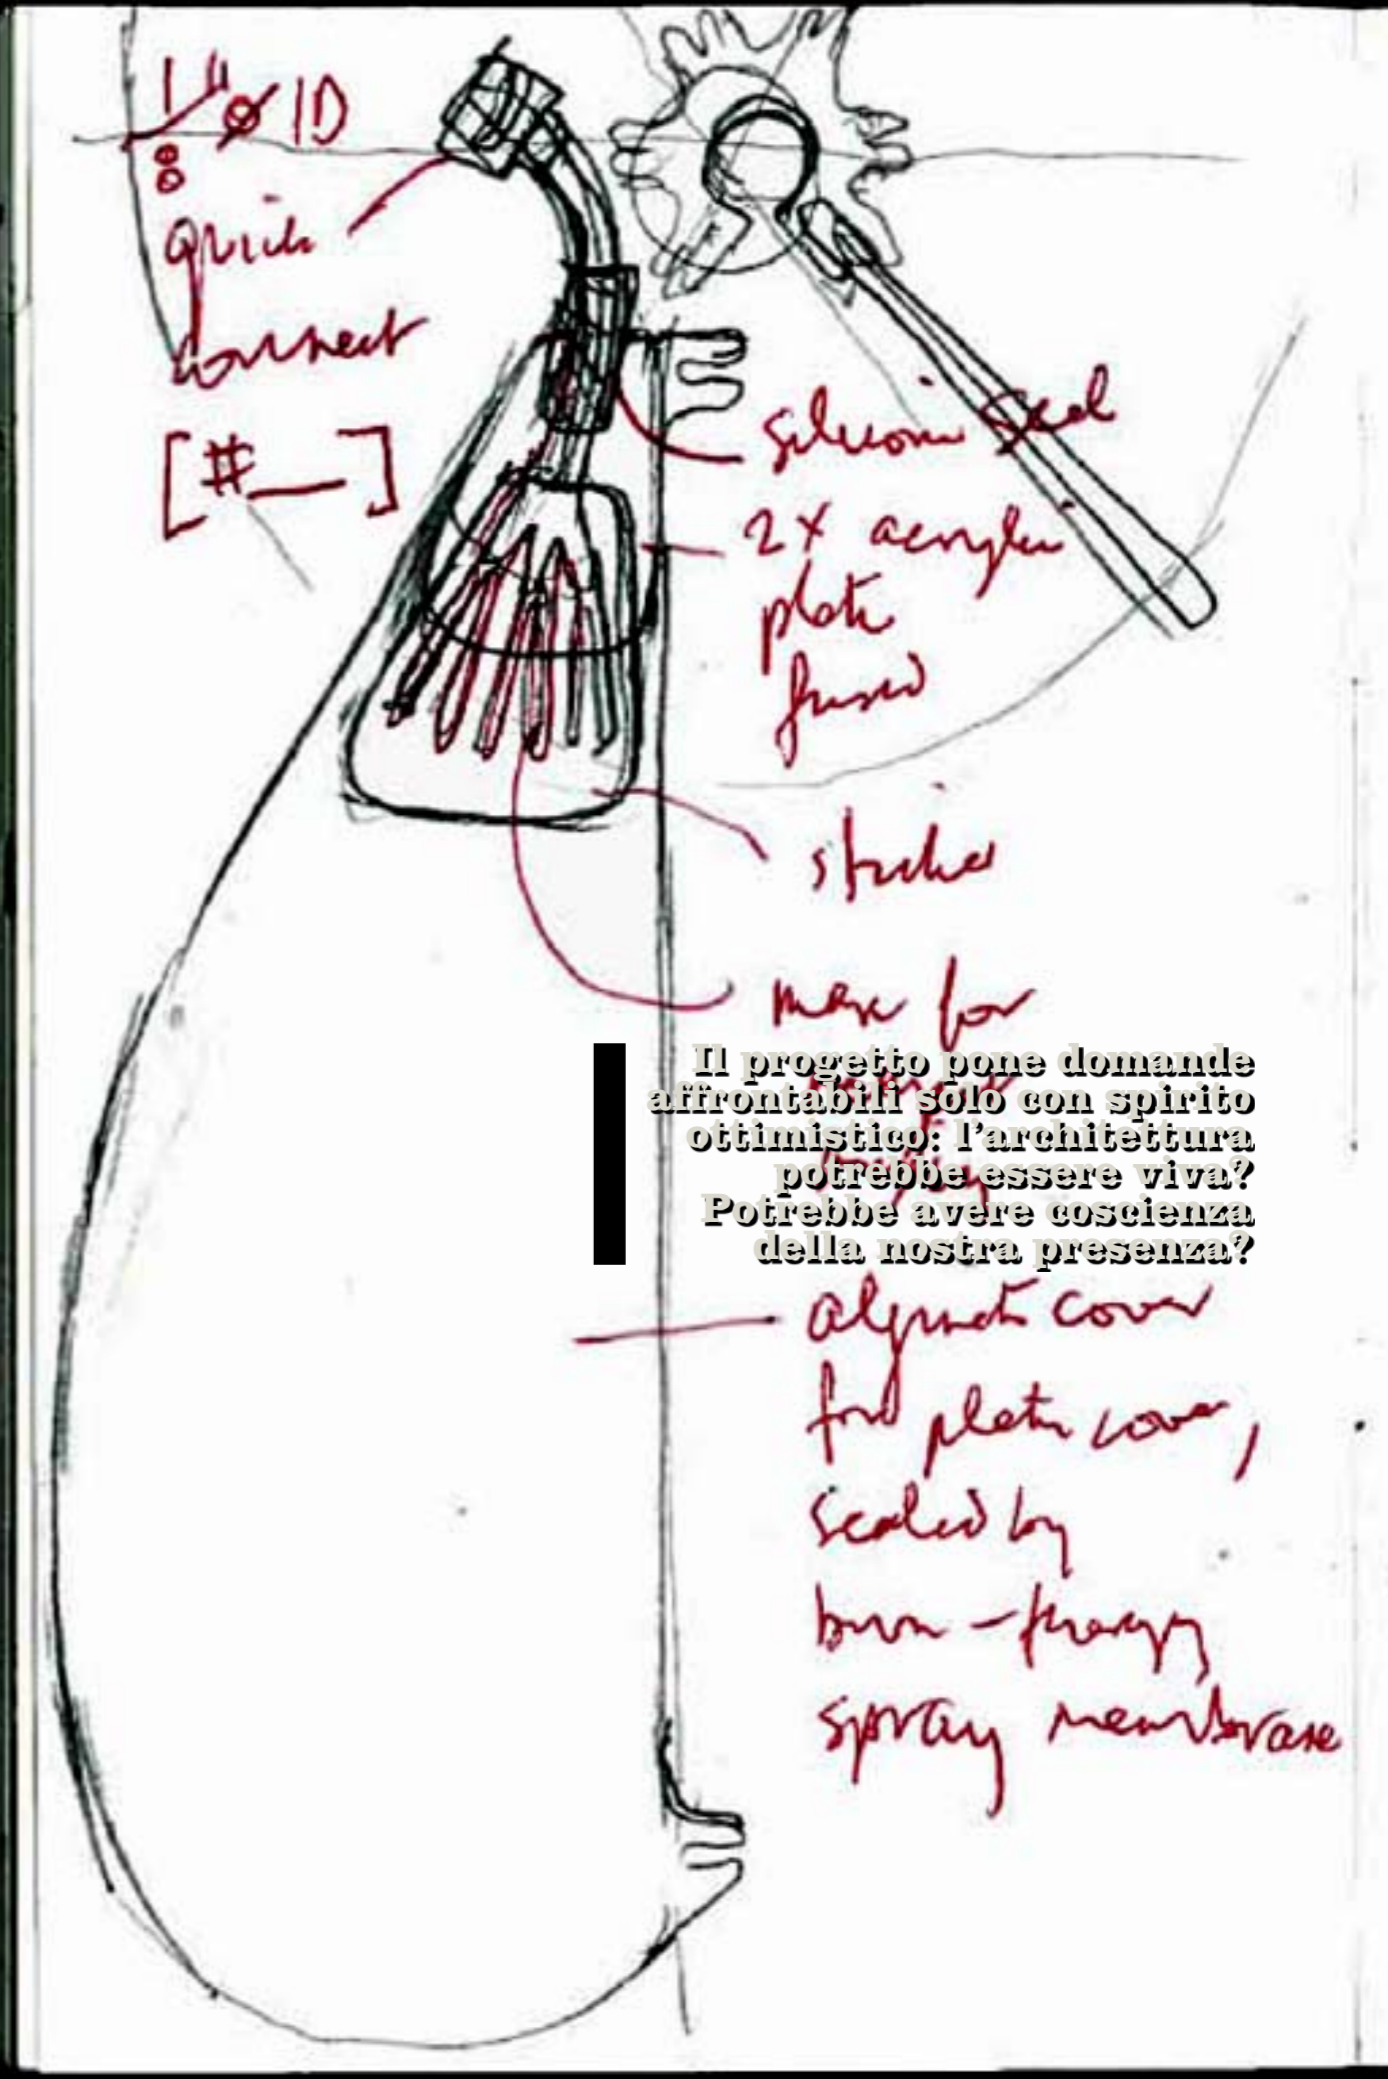 ID
quick
connect
[#__]
silicon seal
2X acrylic
plate
fused
max for
Il progetto pone domande
affrontabili solo con spirito
ottimistico: l’architettura
potrebbe essere viva?
Potrebbe avere coscienza
della nostra presenza?
cover
for plate cover,
sealed by
burn-therapy
spray membrane